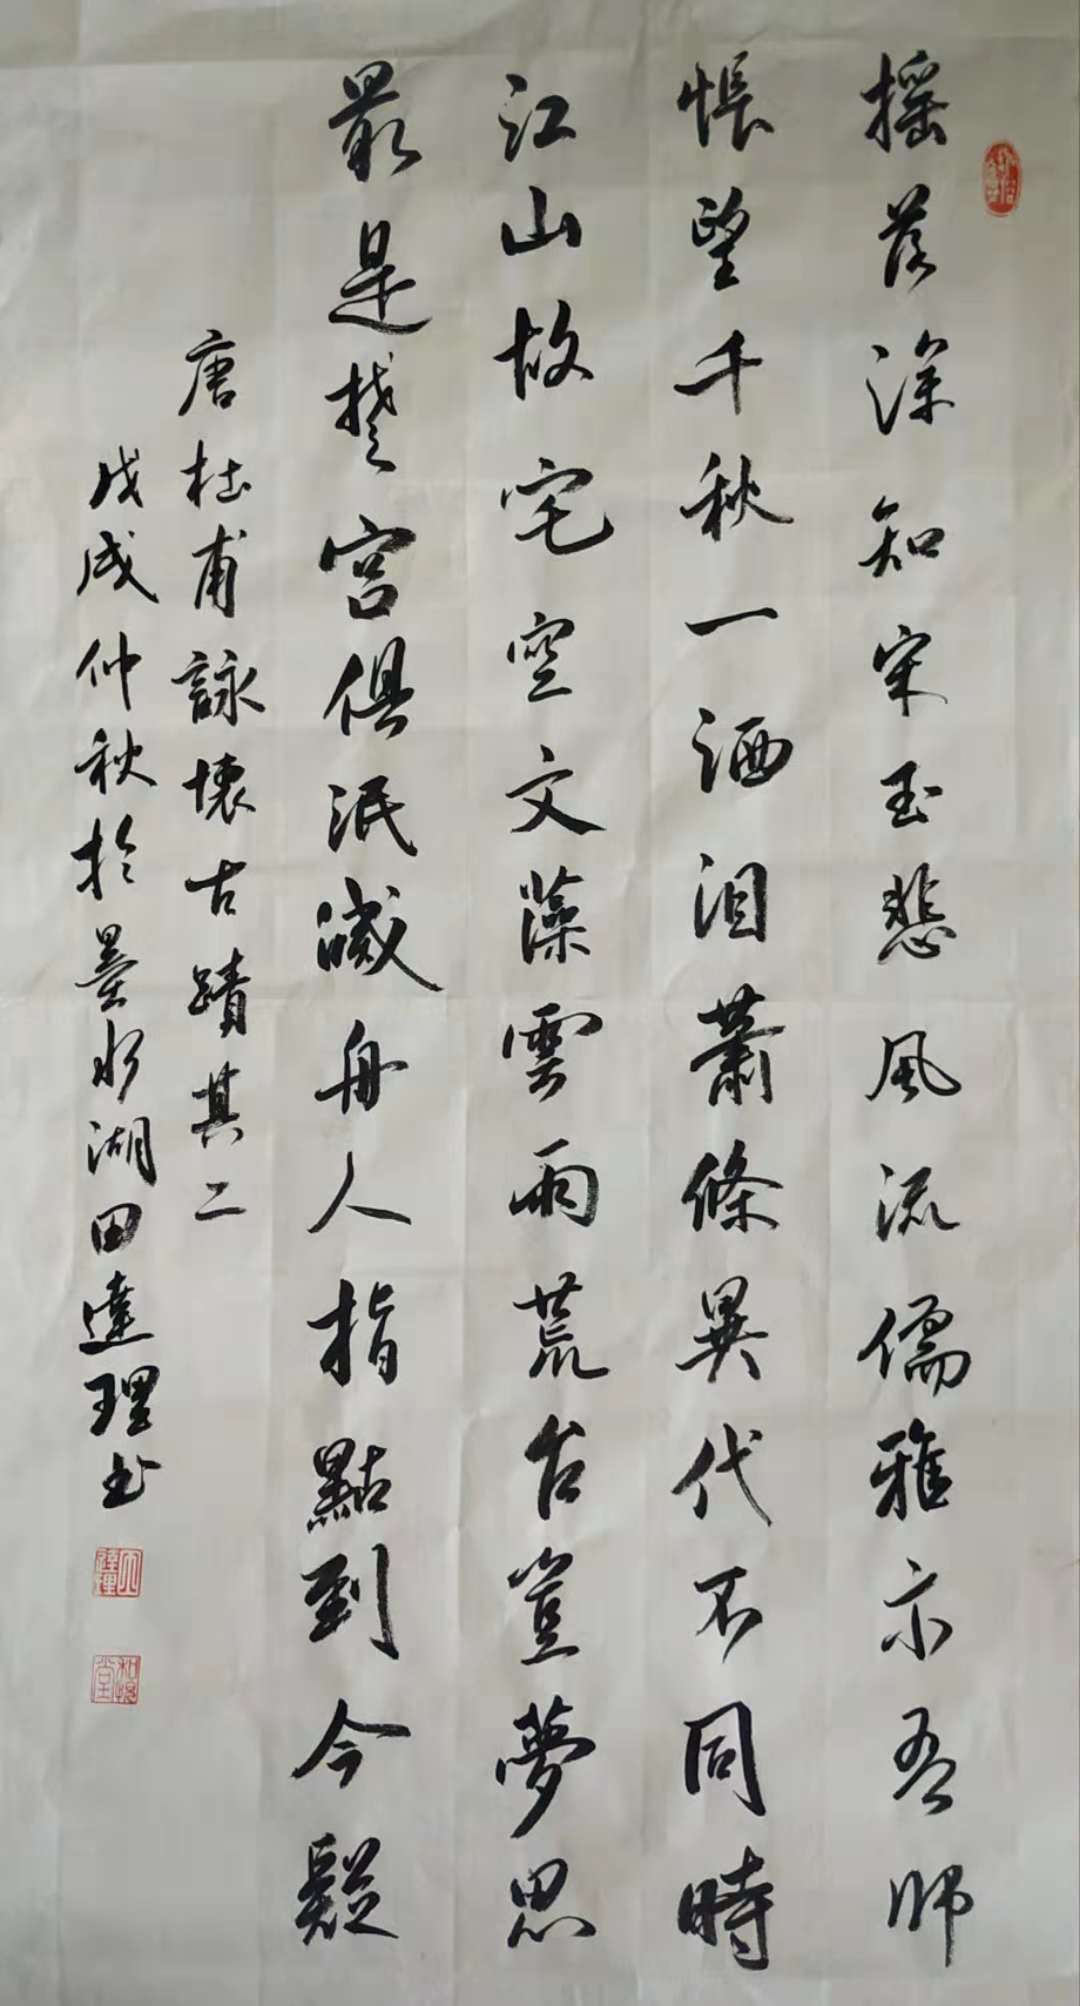 摇落深知宋玉悲風流儒雅亦吾師
悵望千秋一洒泪蕭條異代不同時
江山故宅空文藻雲雨荒台豈夢思
最是楚宮俱泯滅舟人指點到今疑
唐杜甫詠懷古蹟其二
戊戌仲秋於墨水湖田達理书